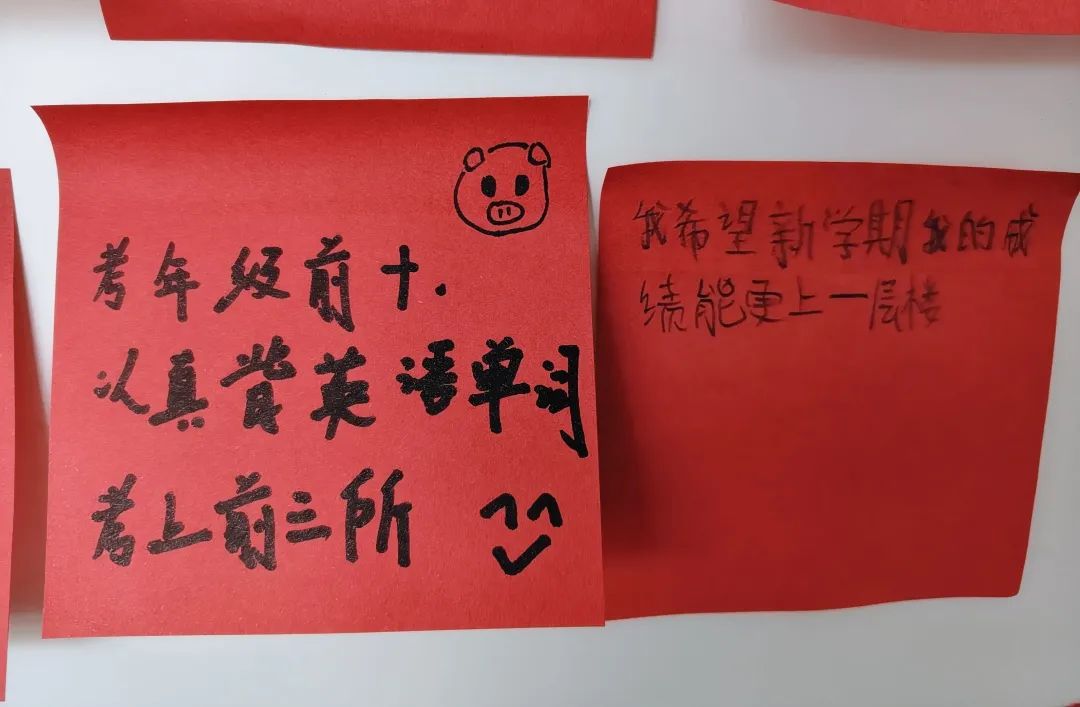 考年级前十.
认真背英语单词
考上前三所
我希望新学期我的成
绩能更上一层楼